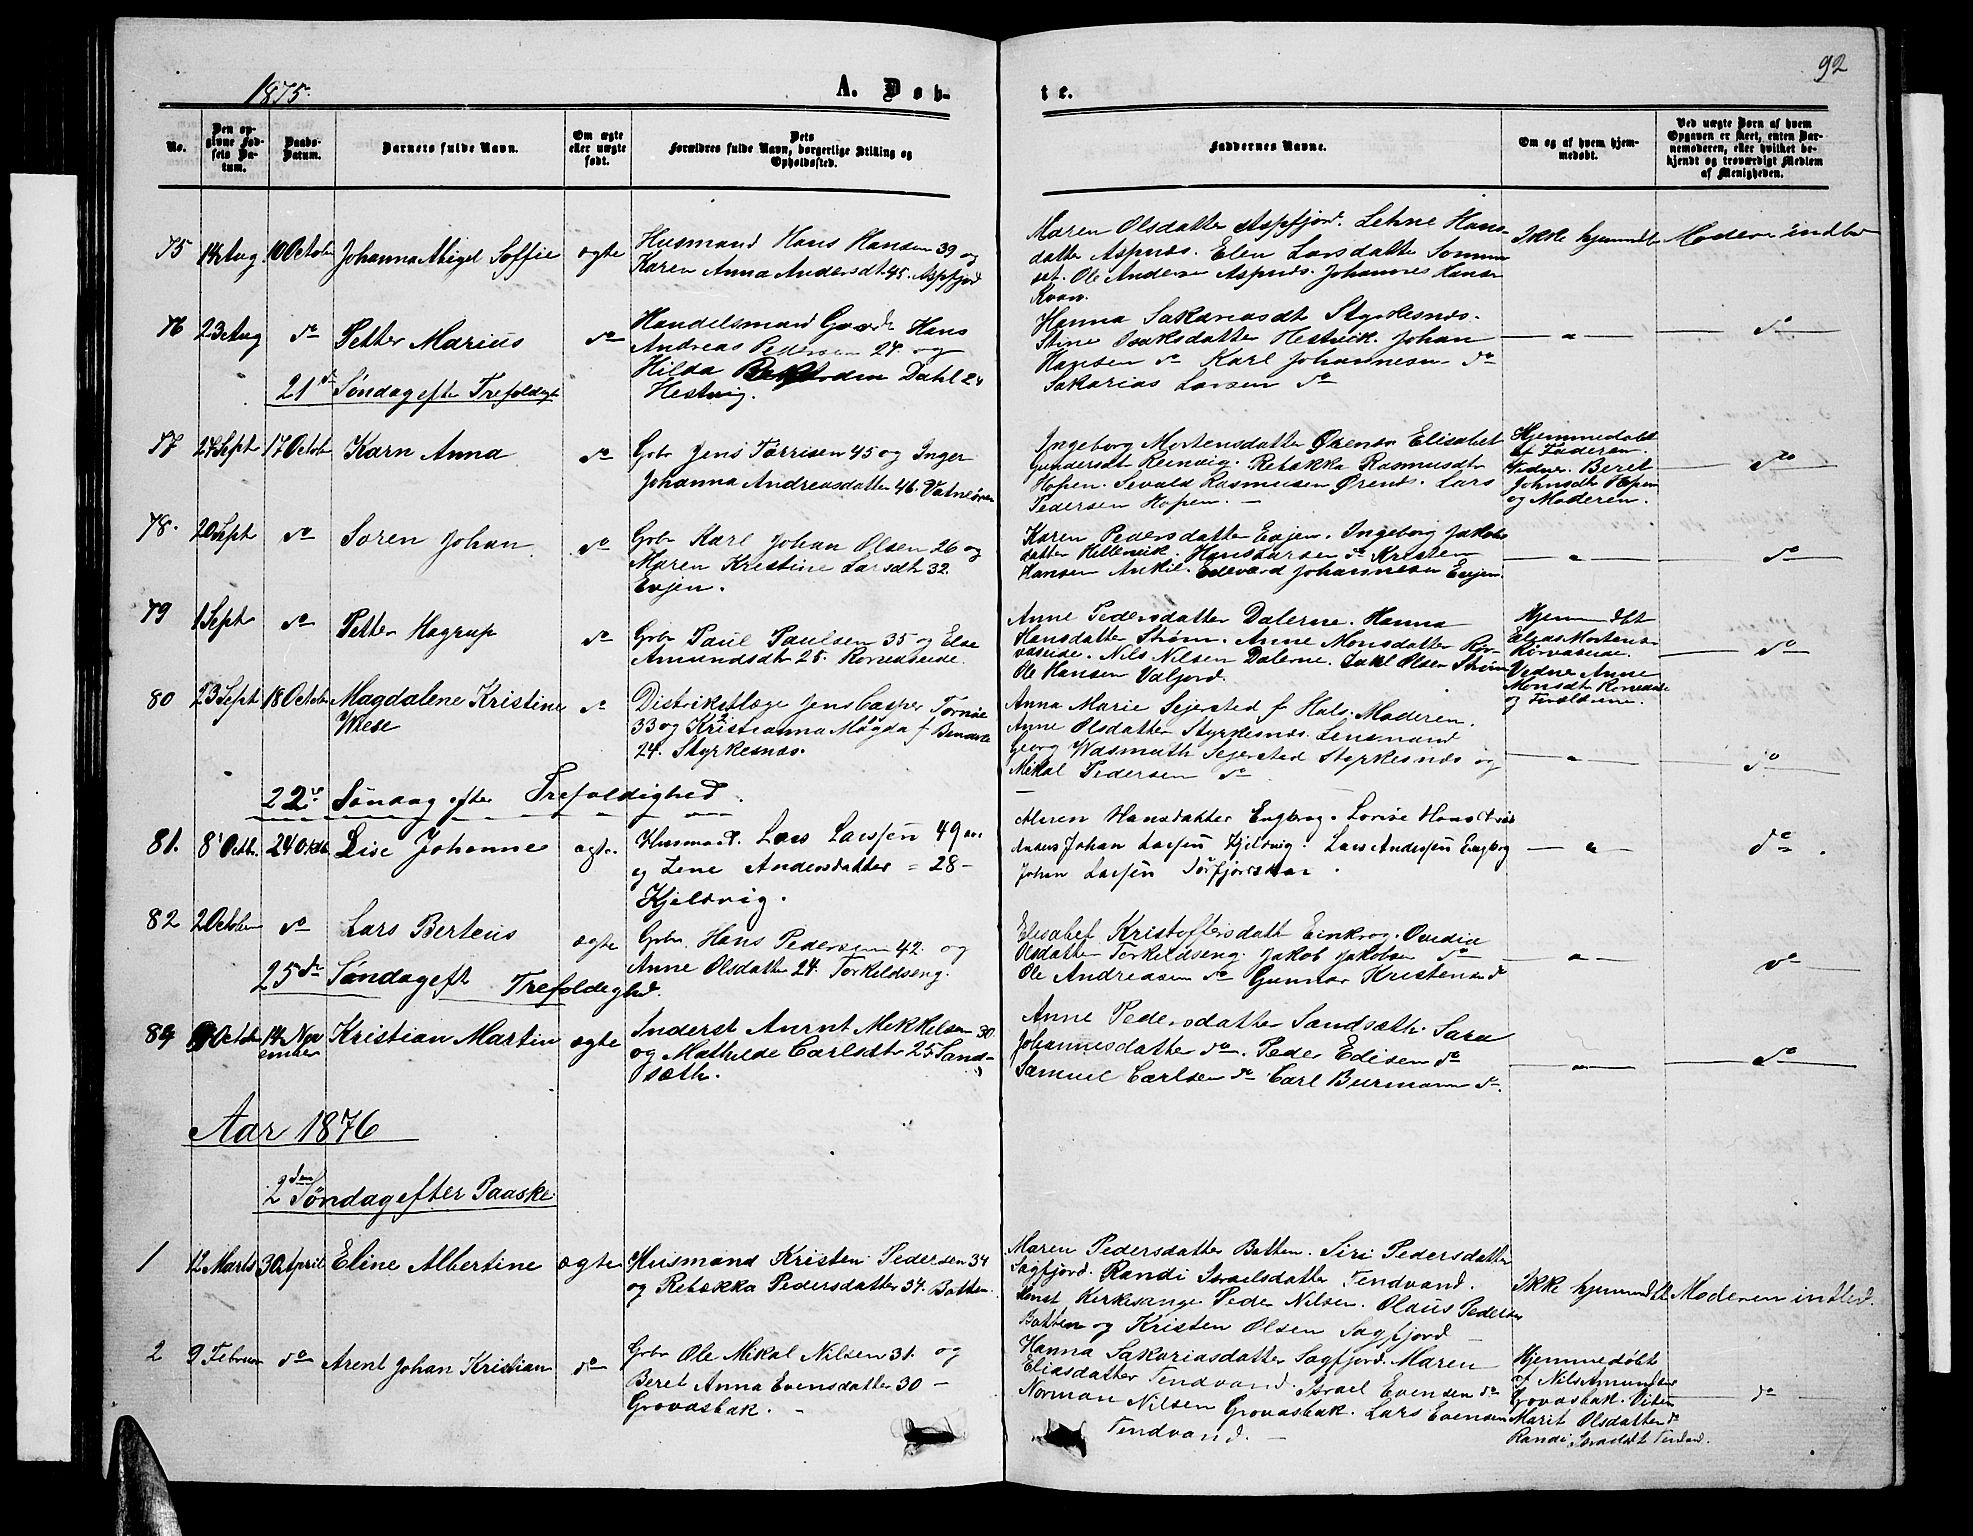 1875.
A. Døb-
te.
92
No.
Den op-
givne Fød-
sels Da-
tum.
Daabs-
Datum.
Barnets fulde Navn.
Om ægte
eller uægte
født.
Dets
Forældres fulde Navn, borgerlige Stilling og
Opholdssted.
Faddernes Navne.
Om og af hvem hjem-
medøbt.
Ved uægte Børn af hvem
Opgaven er skeet, enten Bar-
nemoderen, eller hvilket be-
kjendt og troværdigt Medlem
af Menigheden.
75 14 Aug. 10 October Johanna Abigel Soffie ægte
Husmand Hans Hansen 39 og
Karen Anna Andersdt. 45. Aspfjord
Maren Olsdatter Aspfjord. Lehne Hans-
datter Aspnes. Elen Larsdatter Sommer-
set. Ole Andersen Aspnes. Johannes Hansen
Kvan.
Ikke hjemmdt Moderen indled
76 23 Aug do Petter Marius do
Handelsmand Hans
Andreas Pedersen 27. og
Hilda Dahl 24
Hestvig.
Hanna Sakariasdt Styrkesnes.
Stine Isaksdatter Hestvik. Johan
Hansen do Karl Johannesen do
Sakarias Larsen do
— " — do
21de Søndag efter Trefoldigh
77 24 Sept 17 October Karn Anna do
Gbr Jens Tørrisen 45 og Inger
Johanna Andreasdatter 46. Vatnøren
Ingeborg Mortensdatter Ørenes Elisabet
Gundersdt Reinvig. Rebækka Rasmusdt
Hopen. Sevald Rasmusen Ørenes. Lars
Pedersen Hopen. —
Hjemmedøbt
af Faderen.
Vidner. Beret
Johnsdt Hopen
og Moderen.
do
78. 20 Sept do Soren Johan do
Gbr Karl Johan Olsen 26 og
Maren Kristine Larsdt 32.
Evjen.
Karen Pedersdatter Evjen. Ingeborg Jakobs-
datter Hellevik. Hans Larsen do Kristen
Hansen Ankil. Edevard Johannesen Evjen.
— " — do
79 1 Sept do Petter Hagrup do
Gbr Paul Paulsen 35 og Else
Amundsdt 28. Rørvaseide.
Anne Pedersdatter Dalerne. Hanna
Hansdatter Strøm. Anne Monsdatter Rør-
vaseide. Nils Nilsen Dalerne. Olsen Strøm
Ole Hansen Valjord.
Hjemmedbt
Elias Mortensen
Rørvaseide.
Vidner Anne
Monsdt Rørvaseide
og Forældrene.
do
80 23 Sept 18 October Magdalene Kristine
Wiese
do
Distriktslæge Jens Casper Tornøe
33 og Kristianna Magda f
24. Styrkesnes.
Anna Marie Sejersted f Hals. Moderen.
Anne Olsdatter Styrkesnes. Lensmand
Georg Wasmuth Sejersted Styrkesnes og
Mikal Pedersen do
— " — do
22de Søndag efter Trefoldighed.
81. 8 Octb. 24 Oktb Lise Johanne ægte.
Husmand. Lars Larssen 49 aar
og Lene Andersdatter = 28 —
Kjeldvig.
Maren Hansdatter Engbrog. Lovise Hansdtr
Anders Johan Larssen Kjeldvig. Lars Anderssen Engbrog
Johan Larssen Tørfjordskar.
— " — do.
82 2 October do Lars Berteus ægte
Gbr. Hans Pedersen 42. og
Anne Olsdatter 24. Torkeldseng.
Elisabet Kristoffersdatt Einkrog. Ovedia
Olsdatter Torkeldseng. Jakob Jakobsen do
Ole Andreasen do Gunnar Kristensen do
— " — do
25de Søndag eft Trefoldighed.
84 9 October 14 Nov
ember
Kristian Martin ægte
Inderst Arnt Mekkelsen 30
og Mathilde Carlsdt 25. Sand-
sæth.
Anne Pedersdatter Sandsæth. Sara
Johannesdatter do. Peder Edisen do
Samuel Carlsen do Carl Burmann do.
— " — do
Aar 1876
2den Søndag efter Paaske
1 12 Marts 30 April Eline Albertine ægte
Husmand Kristen Pedersen 34
og Rebækka Pedersdatter 34. Botten.
Maren Pedersdatter Botten. Siri Pedersdatter
Sagfjord. Randi Israelsdatter Tendvand.
Konst Kirkesanger Peder Nilsen. Olaus Pedersen
Botten og Kristen Olsen Sagfjord
Ikke hjemmedt Moderen indled.
2 9 Februar do Arent Johan Kristian do
Gbr Ole Mikal Nilsen 31. og
Beret Anna Evensdatter 30 —
Grovasbak. —
Hanna Sakariasdatter Sagfjord. Maren
Eliasdatter Tendvand. Israel Evensen do
Norman Nilsen Grovasbak. Lars Evensen
Tendvand. —
Hjemmedøbt
af Nils Amundsen
Grovasbak. Vidner
Marit Olsdatter do
Randi Israelsdt Tendvd.
do